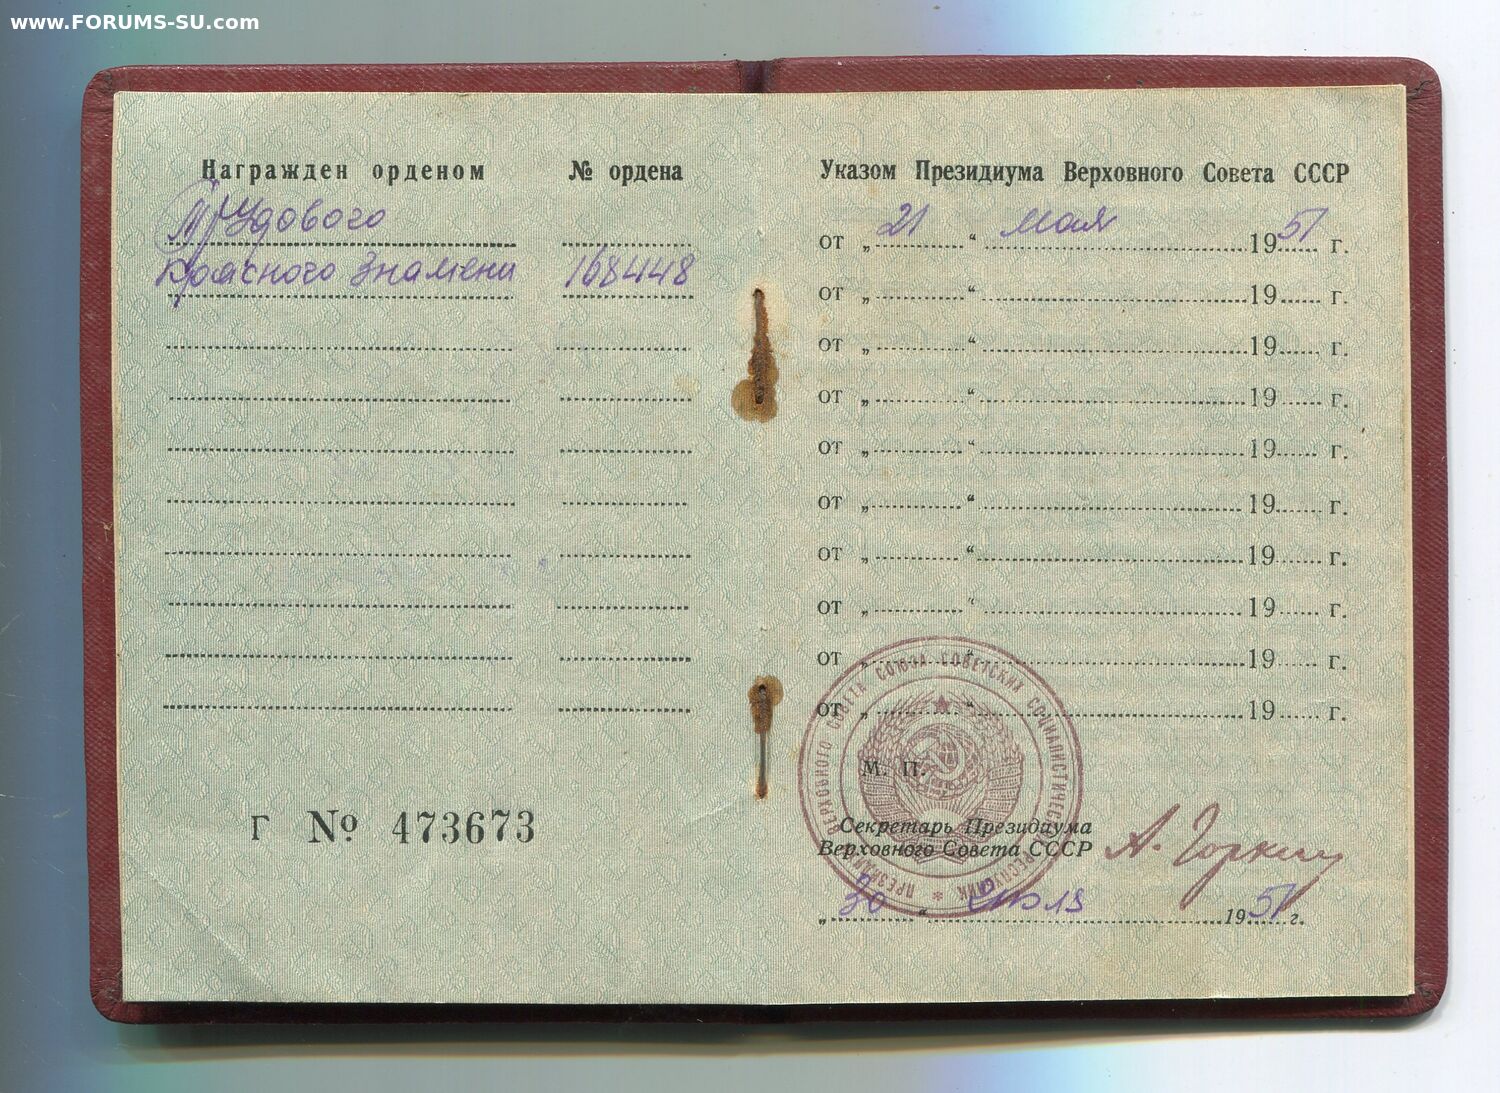 www.FORUMS-SU.com
Награжден орденом № ордена
Трудового
Красного Знамени 168448
Г № 473673
Указом Президиума Верховного Совета СССР
от „ 21 “ мая 1951 г.
от „ “ 19 г.
от „ “ 19 г.
от „ “ 19 г.
от „ “ 19 г.
от „ “ 19 г.
от „ “ 19 г.
от „ “ 19 г.
от „ “ 19 г.
от „ “ 19 г.
М. П.
Секретарь Президиума
Верховного Совета СССР А. Горкин
„ 30 “ июля 1951 г.
ПРЕЗИДИУМ ВЕРХОВНОГО СОВЕТА СОЮЗА СОВЕТСКИХ СОЦИАЛИСТИЧЕСКИХ РЕСПУБЛИК